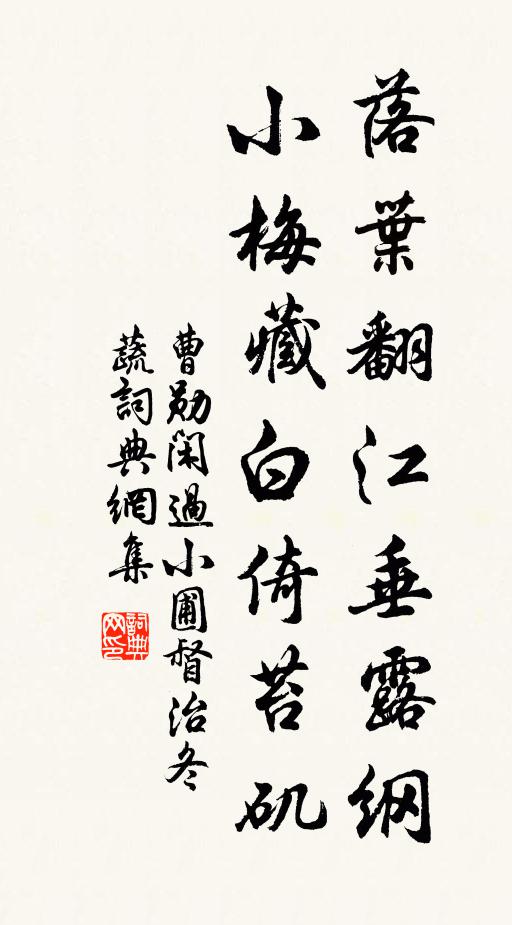 落葉翻江垂露綱
小梅藏白倚苔矶
曹勛閑過小圃督治冬
蔬詞典網集
詞典
网印